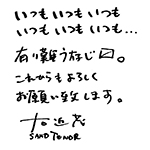 いつも いつも いつも
いつも いつも いつも…
有り難うなじ〼。
これからもよろしく
お願い致します。
右近茂
SAND TENOR